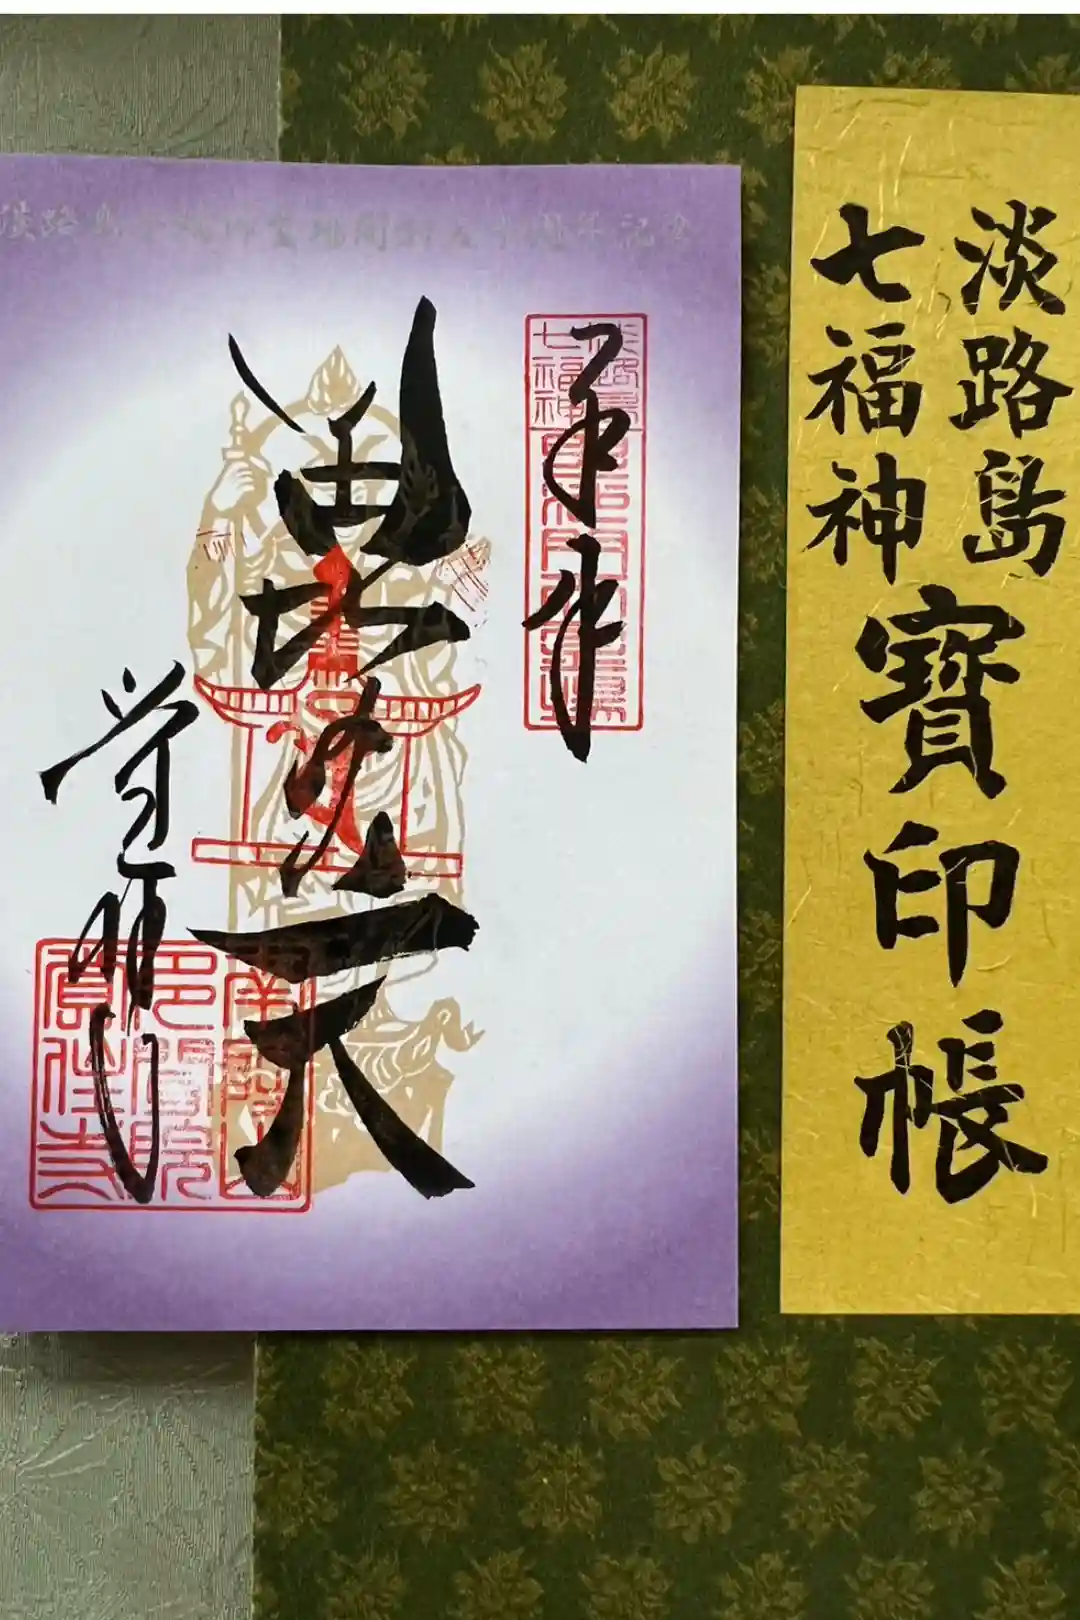 淡路島
七福神
寶印帳
淡路島七福神霊場開創五十周年記念
奉拝
淡路島
七福神
毘沙門天霊場
毘沙門天
覚住寺